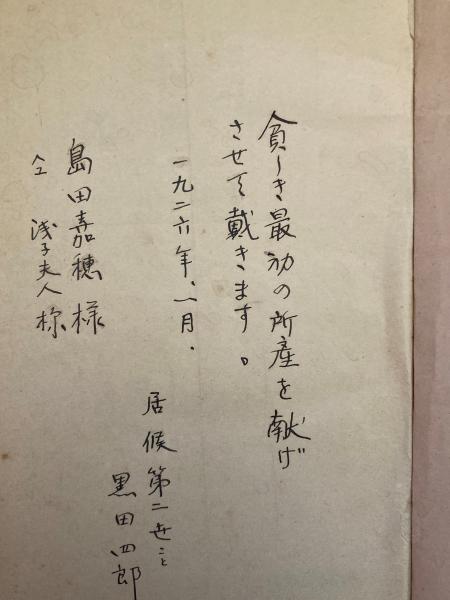 貧しき最初の所産を献げ
させて戴きます。
一九二六年、一月.
居候第二世こと
黒田四郎
島田嘉穂様
仝 浅子夫人様